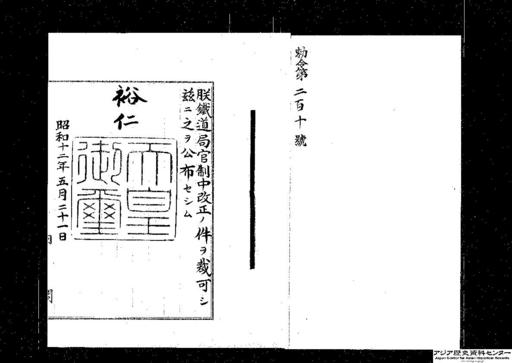 勅令第二百十號
朕鐵道局官制中改正ノ件ヲ裁可シ
玆ニ之ヲ公布セシム
裕仁
天皇御璽
昭和十二年五月二十一日
アジア歴史資料センター
Japan Center for Asian Historical Records